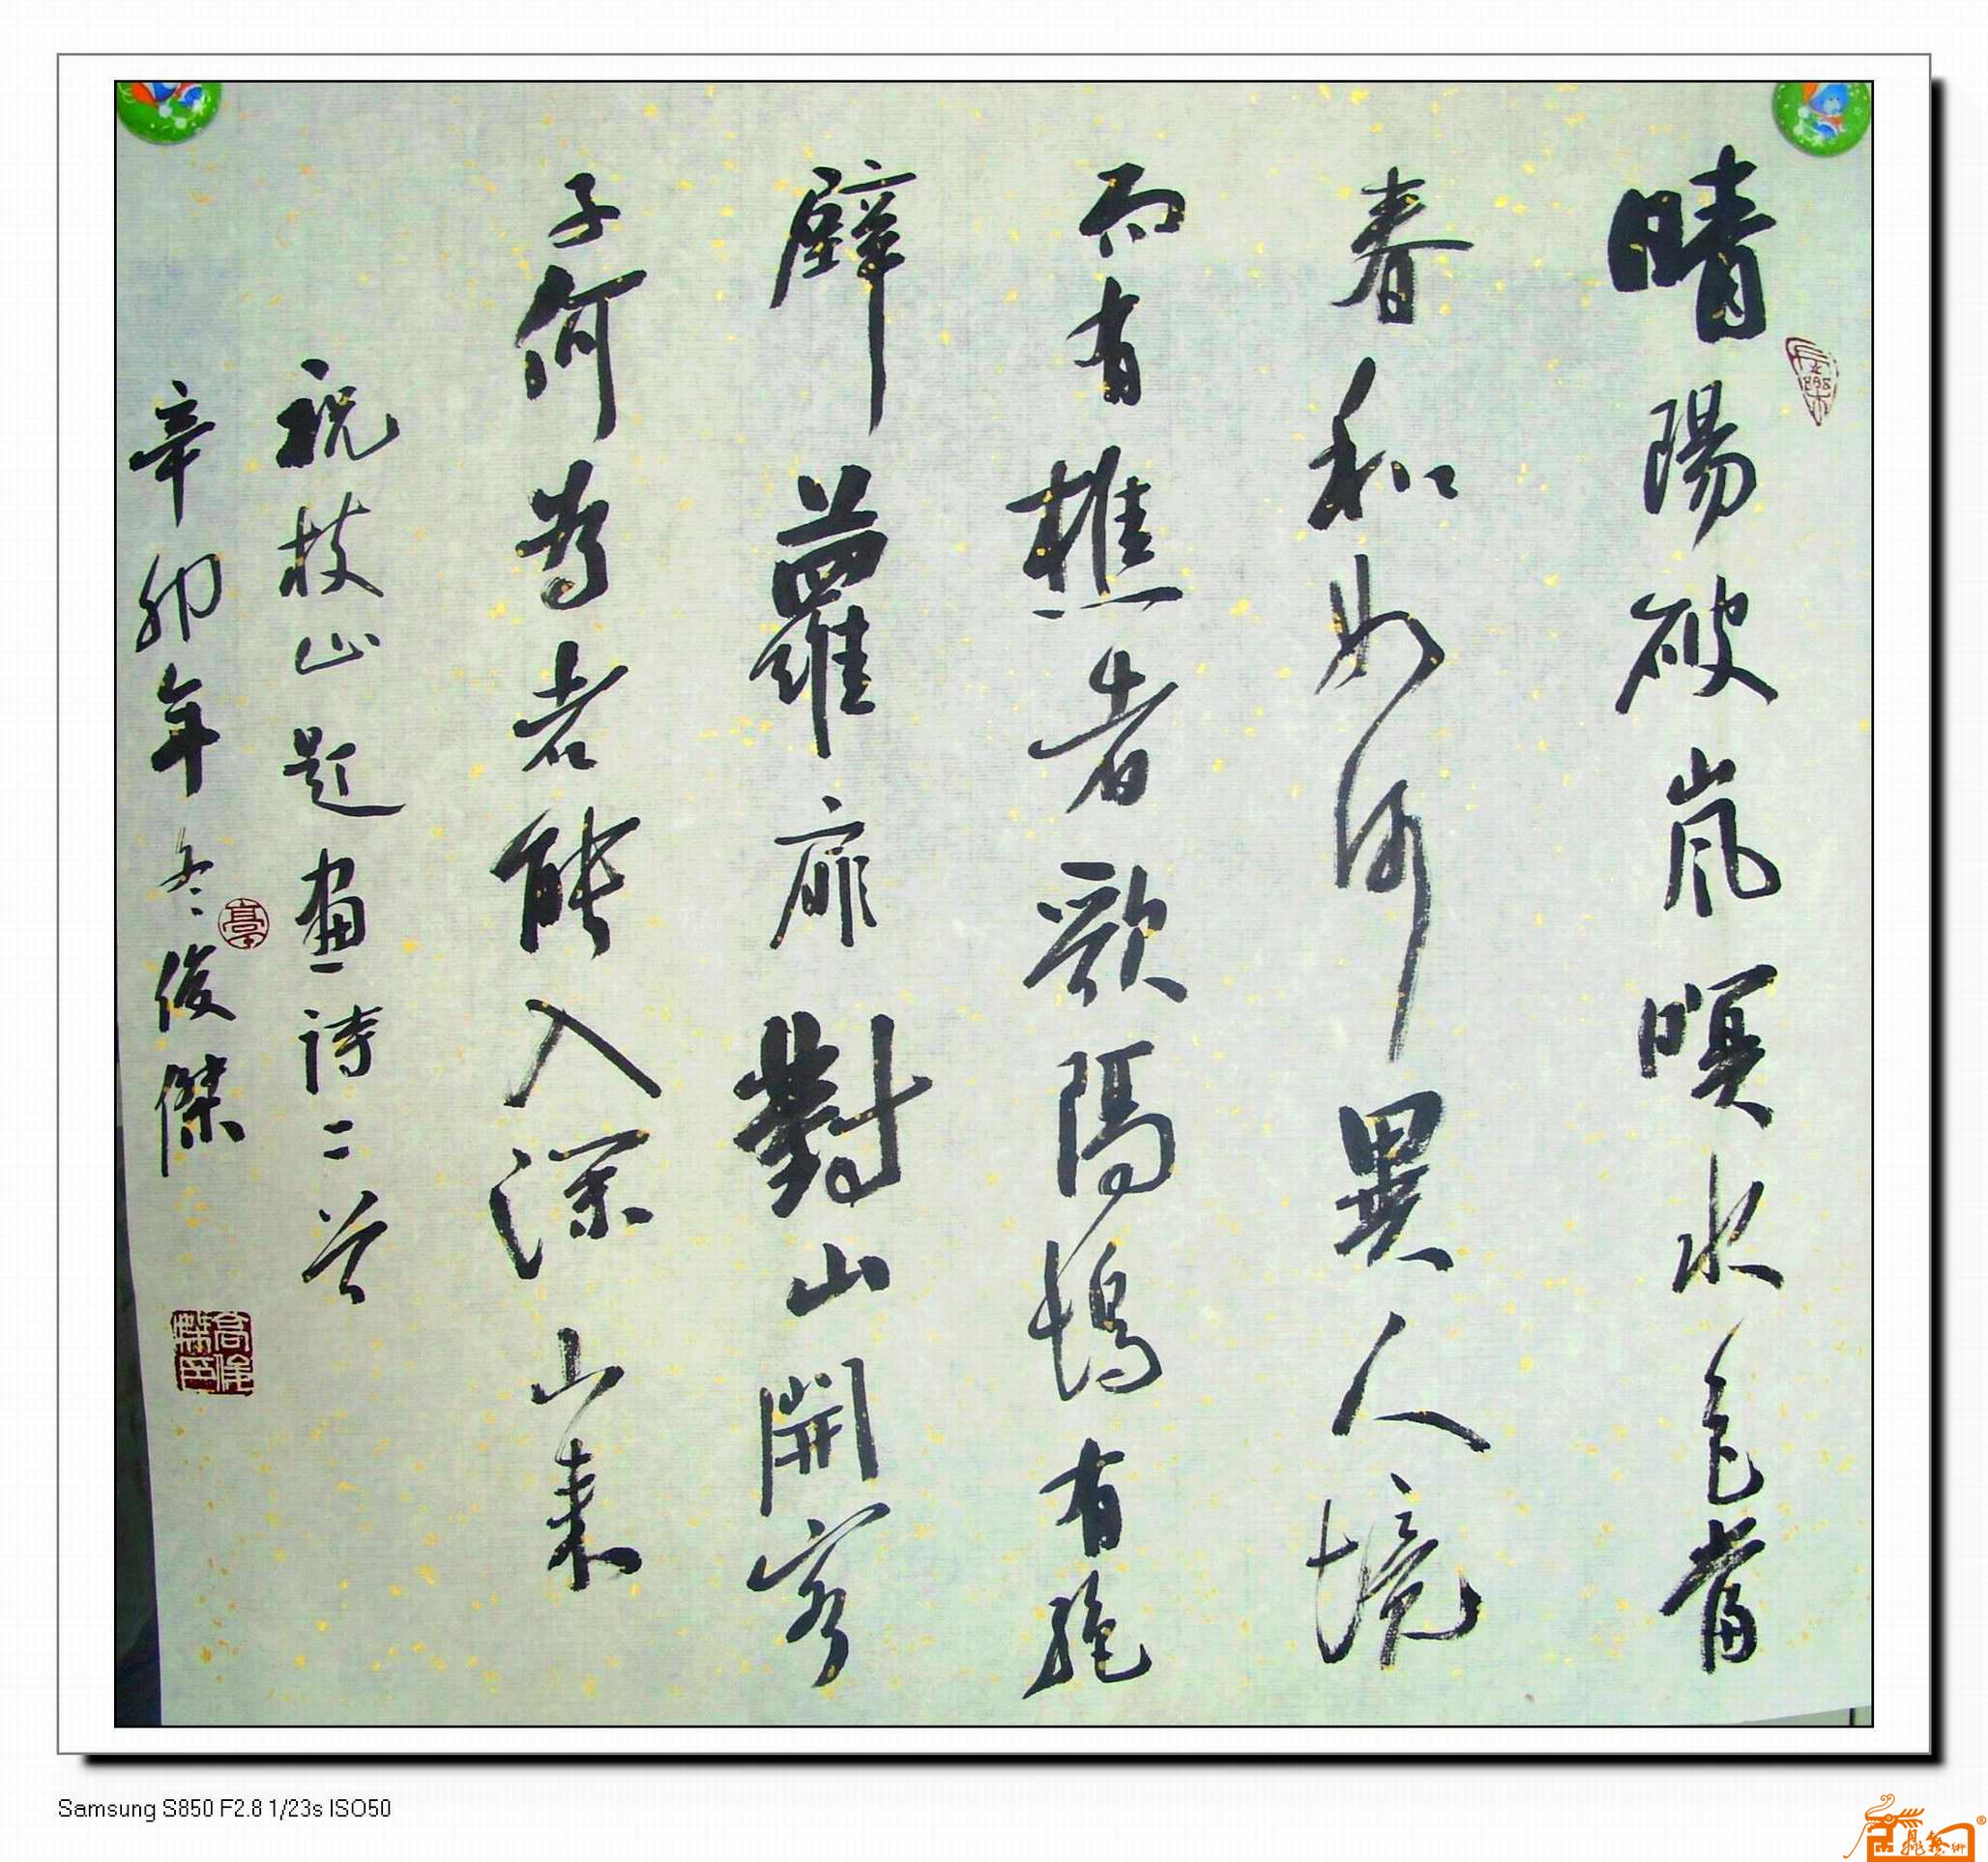 晴陽破嵐暝水色當
春和如何異人境
而有樵者歌隔塢有絶
壁蘿扉對山開客
子何為者能入深山來
祝枝山题畫詩二首
辛卯年冬俊傑
Samsung S850 F2.8 1/23s ISO50